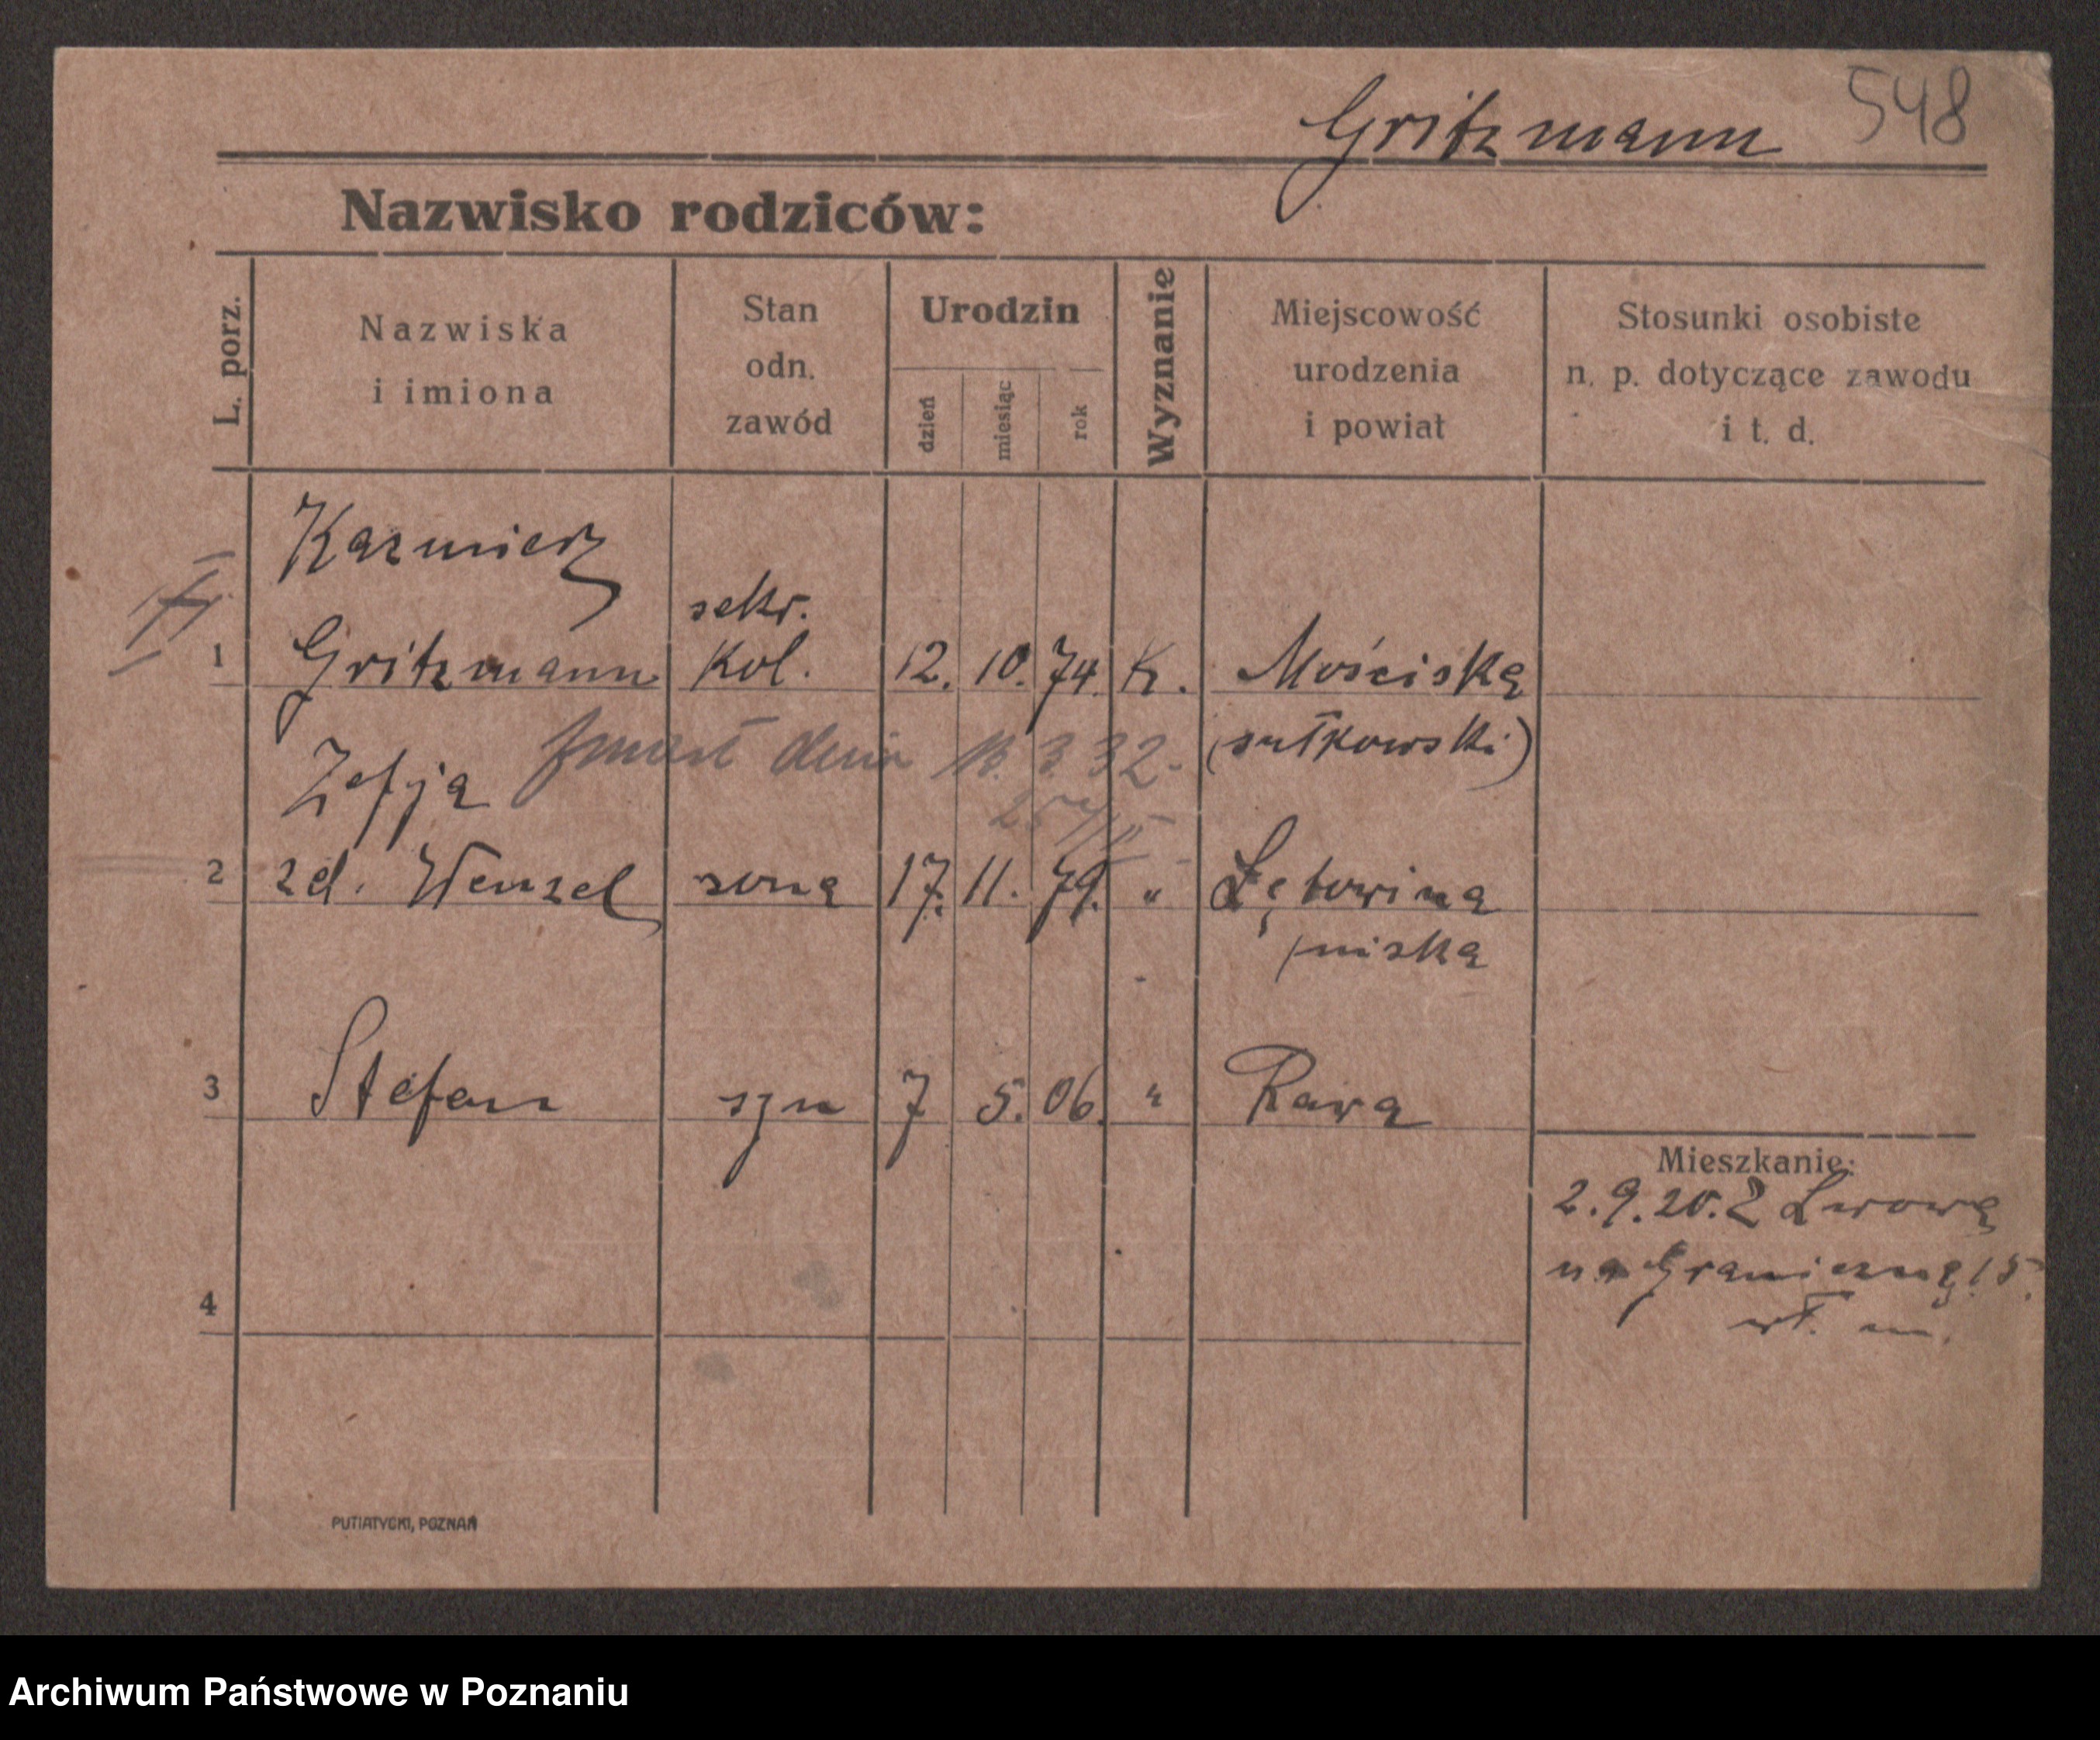 Gritzmann 548
Nazwisko rodziców:
L. porz.
Nazwiska
i imiona
Stan
odn.
zawód
Urodzin
dzień
miesiąc
rok
Wyznanie
Miejscowość
urodzenia
i powiat
Stosunki osobiste
n. p. dotyczące zawodu
i t. d.
Kazmierz
sekr.
1 Gritzmann Kol. 12. 10. 74. K. Mościska
zmarł dnia 3. 32.
Zofja
2 zd. Wenzel żona 17. 11. 79. " Łętowina
niska
3 Stefan syn 7 5. 06. " Rawa
Mieszkanie:
2. 9. 20. Z Lwowa
na Graniczną 15.
4
wł. m.
PUTIATYCKI, POZNAŃ
Archiwum Państwowe w Poznaniu